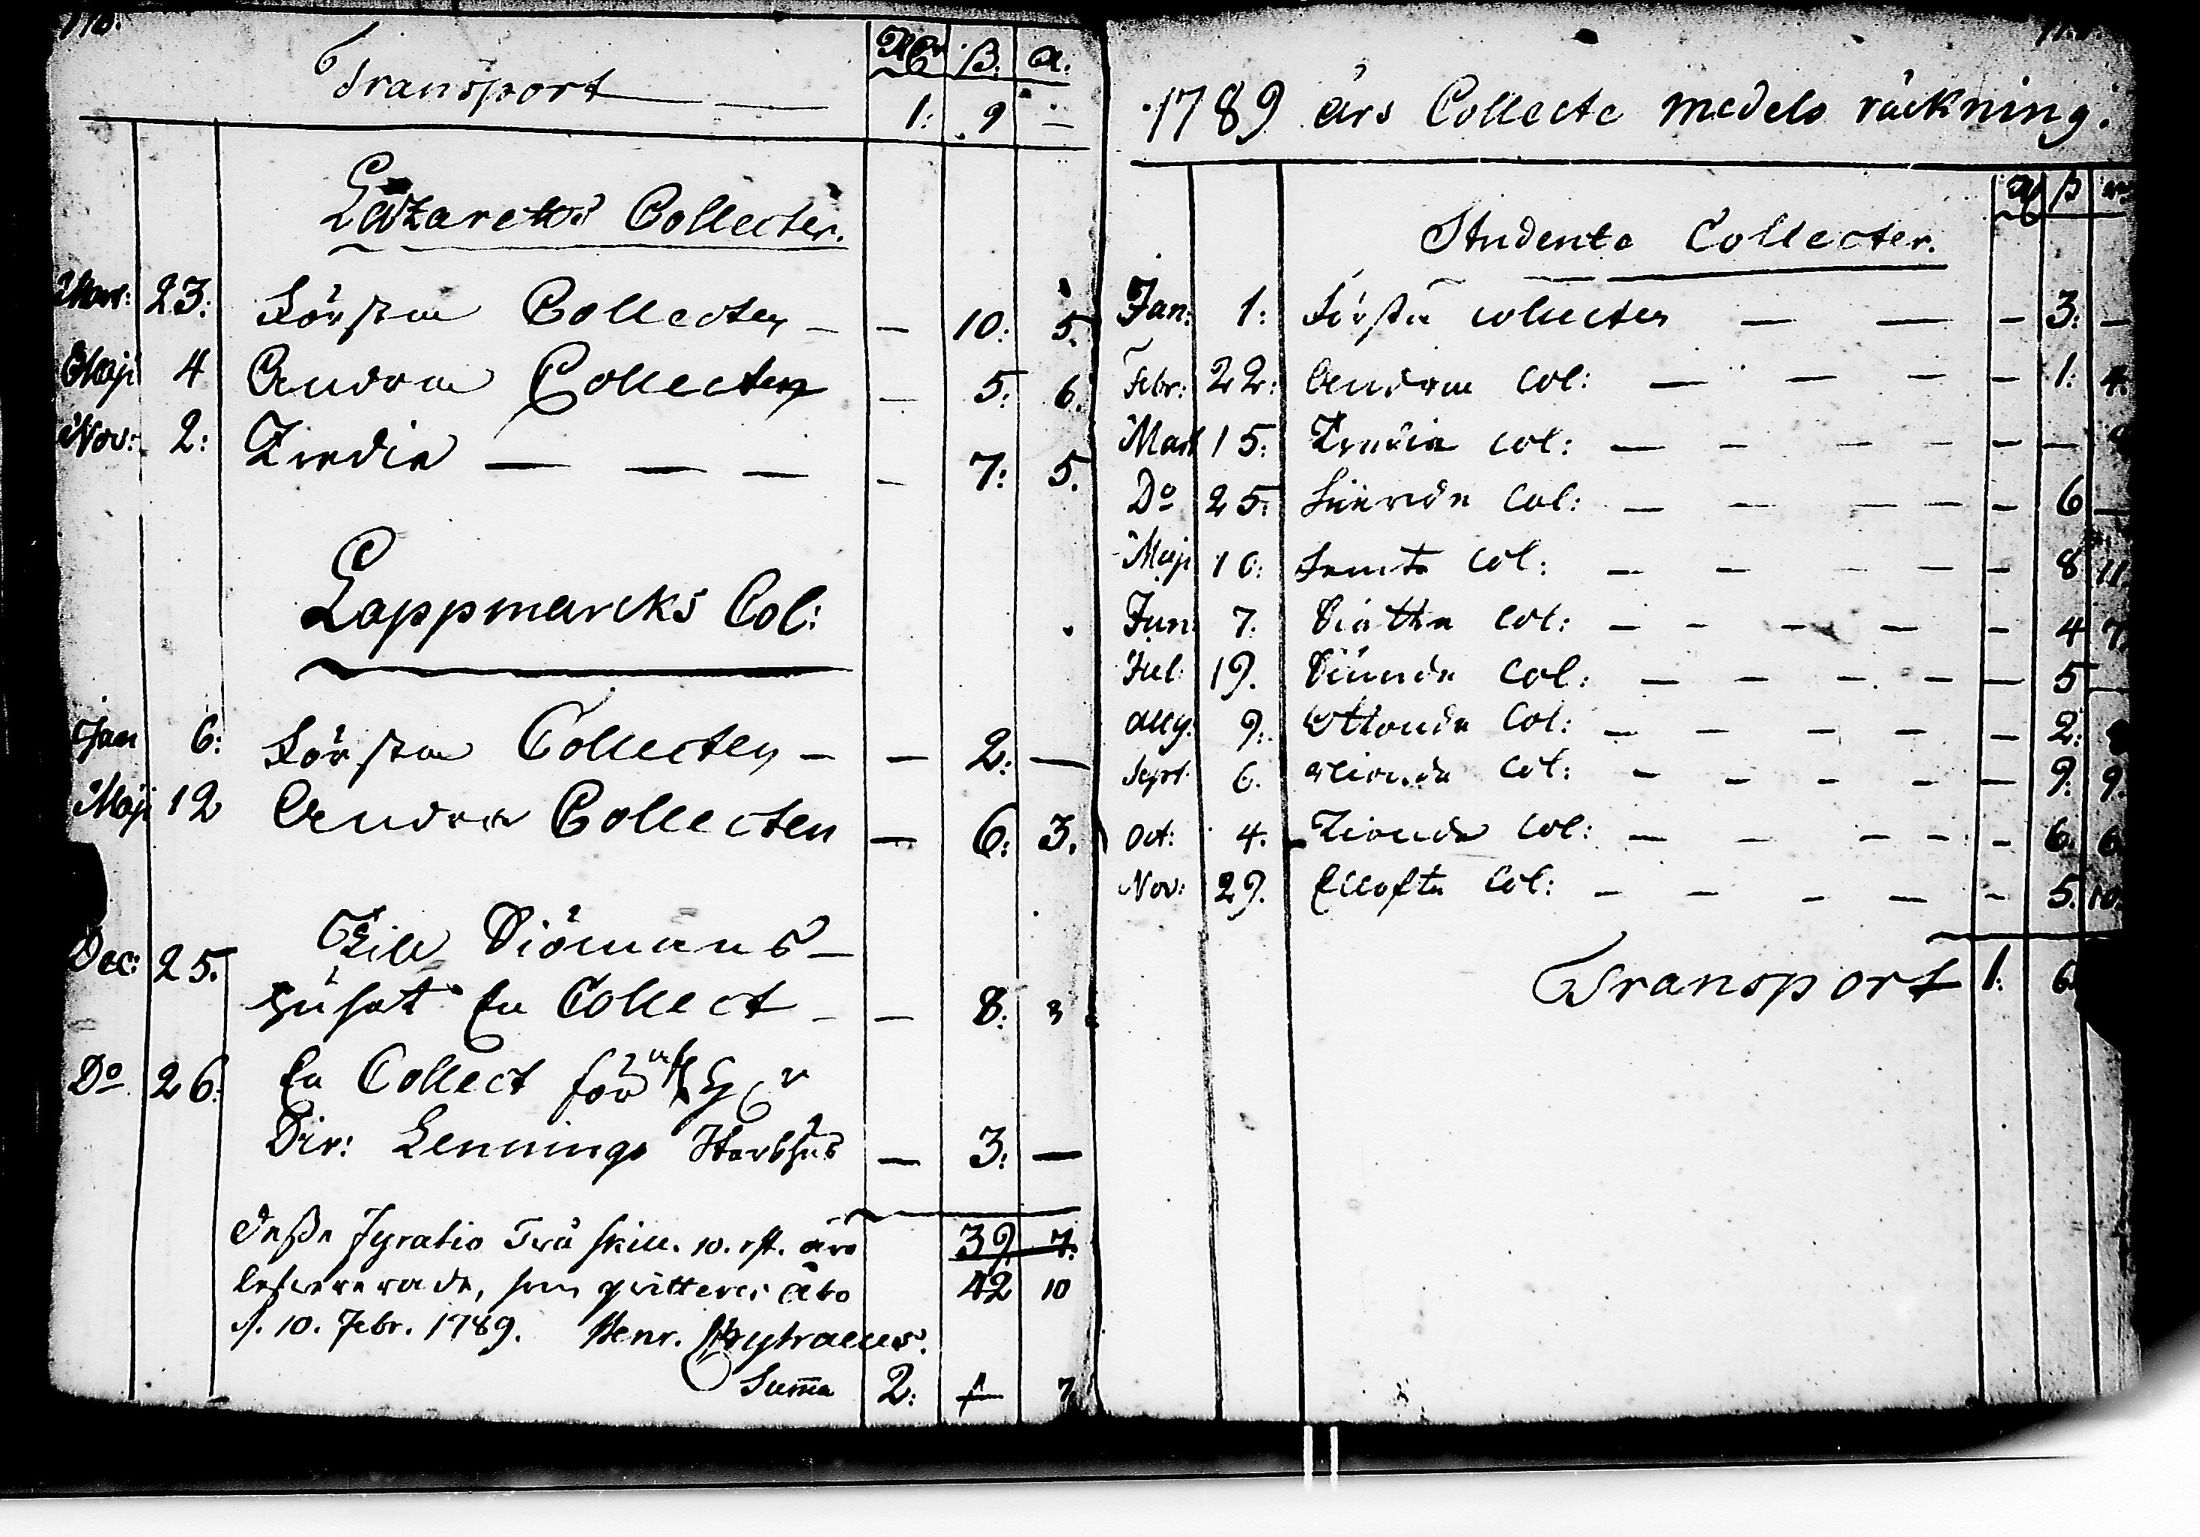 116.
Rdr ß: a:
Transport 1: 9 —
Lazaretts Collecter.
Mar: 23: Första Collecten — — 10: 5.
Maji 4 Andra Collecten — 5: 6.
Nov: 2: Tredie — — — — 7: 5.
Lappmarcks Col:
Jan 6: Första Collecten — — 2: —
Maji 12 Andra Collecten — 6: 3.
Dec: 25. Till Siömans-
huset En Collect — — 8: 3
Do 26: En Collect för
Dir: Lennings Sterbhus — 3: —
39 7.
Desse Fyratio Två skill. 10. rst. äro
levererade, som qvitteras Åbo 42 10
d. 10. Febr. 1789. Henr.
Summa 2: 7.
1789 års Collecte medels räckning.
ß
Studente Collecter.
Jan: 1: Första collecten — — — 3: —
Febr: 22: Andra Col: — — — — 1: 4.
Mart 15: Tredie Col: — — — — —
Do 25: Fierde Col: — — — — — 6 —
Maji 10: Femte Col: — — — — — 8 11.
Jun: 7. Siette Col: — — — — — 4 7.
Jul: 19. Siunde Col: — — — — — 5 —
Aug: 9: Ottonde Col: — — — — — 2:
Sept. 6. Nionde Col: — — — — — 9: 9.
Oct: 4. Tionde Col: — — — — — 6. 6
Nov: 29. Ellofte Col: — — — — — 5. 10.
Transport 1: 6